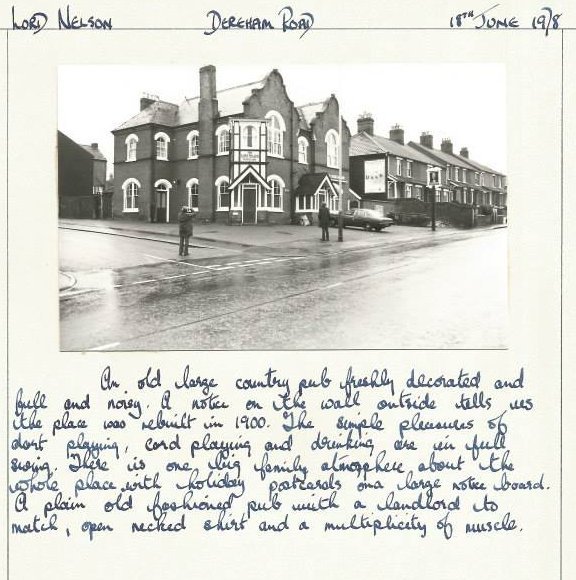 LORD NELSON DEREHAM ROAD 18TH JUNE 1978
An old large country pub freshly decorated and
full and noisy. A notice on the wall outside tells us
the place was rebuilt in 1900. The simple pleasures of
dart playing, card playing and drinking are in full
swing. There is one big family atmosphere about the
whole place with holiday postcards on a large notice board.
A plain old fashioned pub with a landlord to
match, open necked shirt and a multiplicity of muscle.